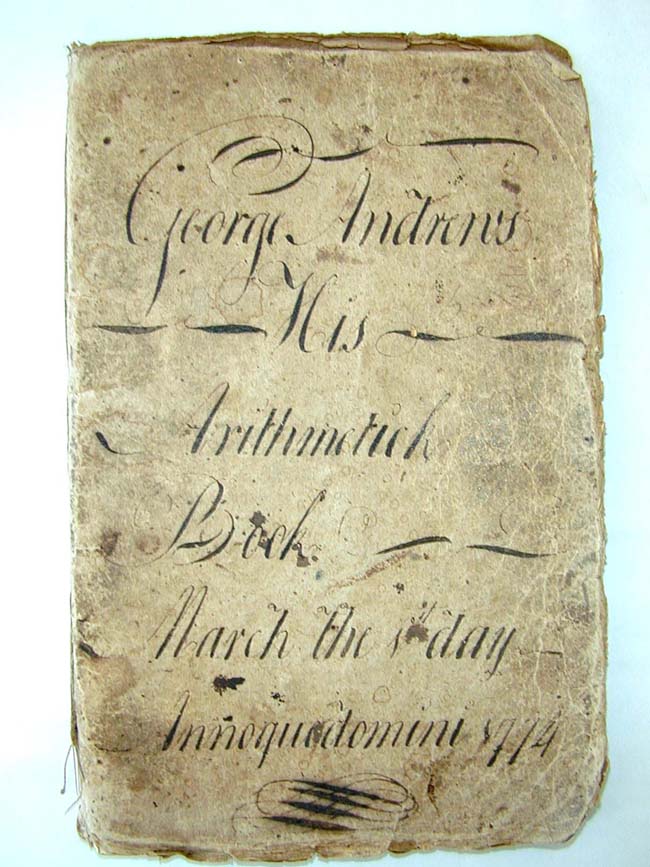 George Andrews
His
Arithmetick
Book
March the 1st day
Annoquodomini 1774